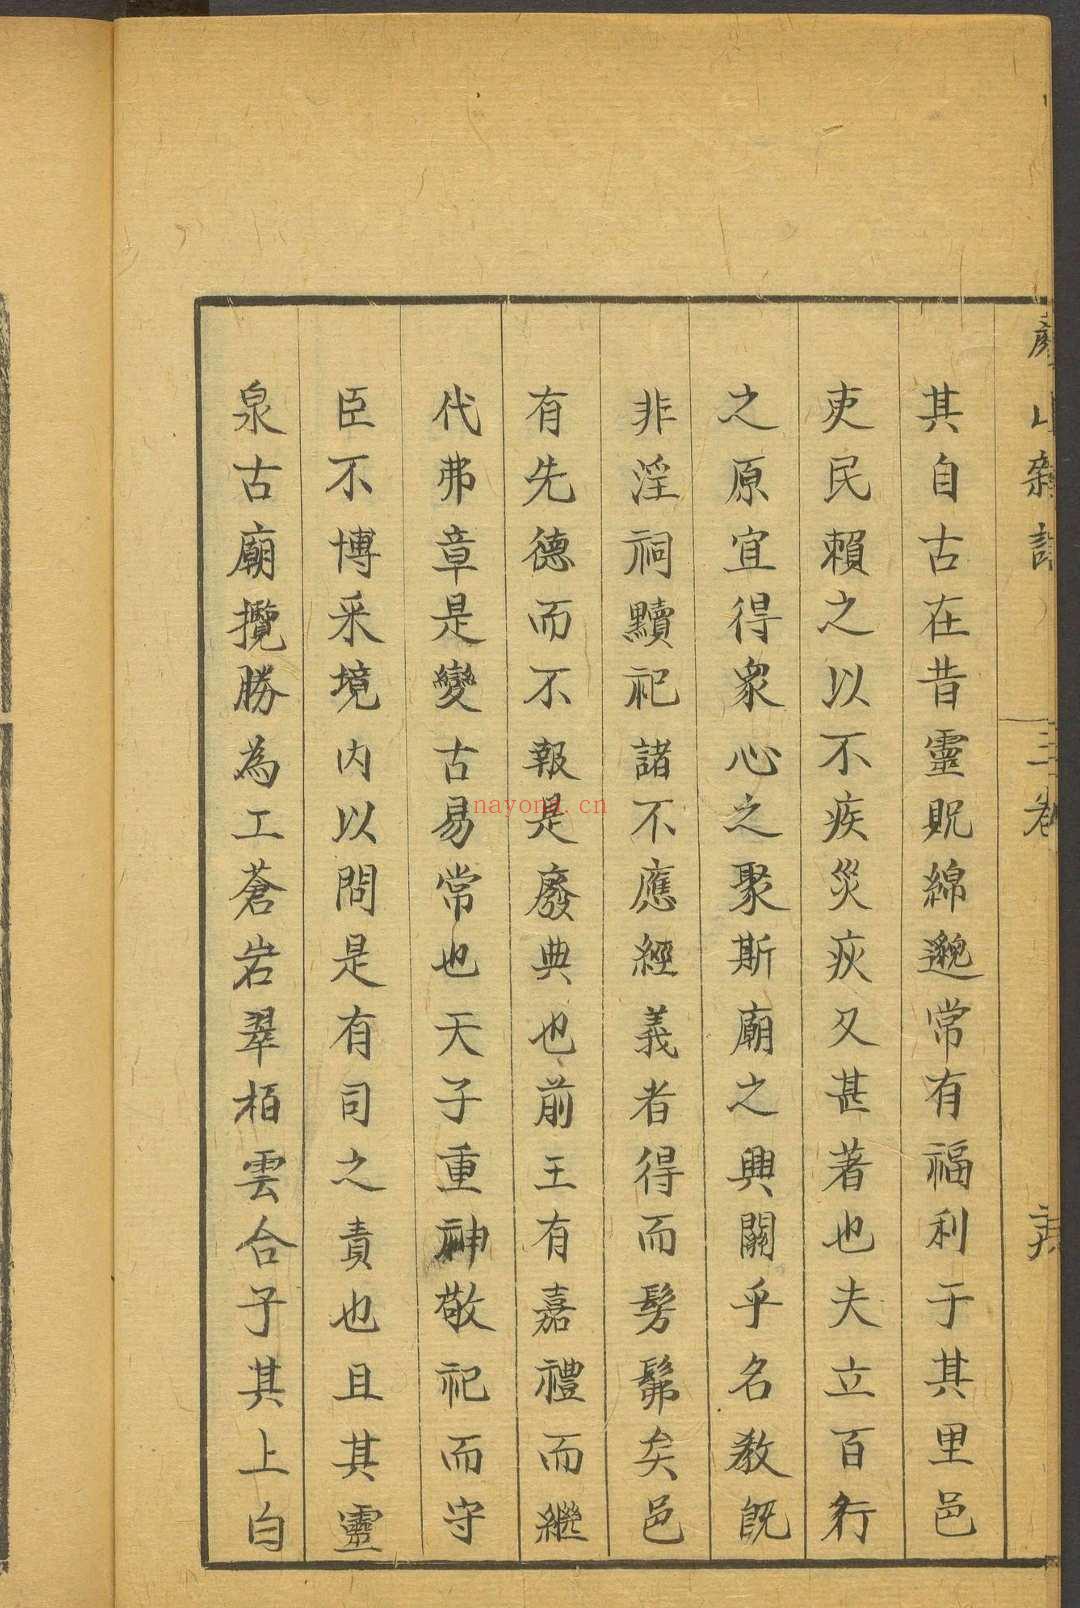 顏山雜記
三卷
其自古在昔靈貺綿邈常有福利于其里邑
吏民賴之以不疾災疢又甚著也夫立百行
之原宜得眾心之聚斯廟之興關乎名教既
非淫祠黷祀諸不應經義者得而髣髴矣邑
有先德而不報是廢典也前王有嘉禮而繼
代弗章是變古易常也天子重神敬祀而守
臣不博采境内以問是有司之責也且其靈
泉古廟攬勝為工蒼岩翠栢雲合于其上白
nayona.cn